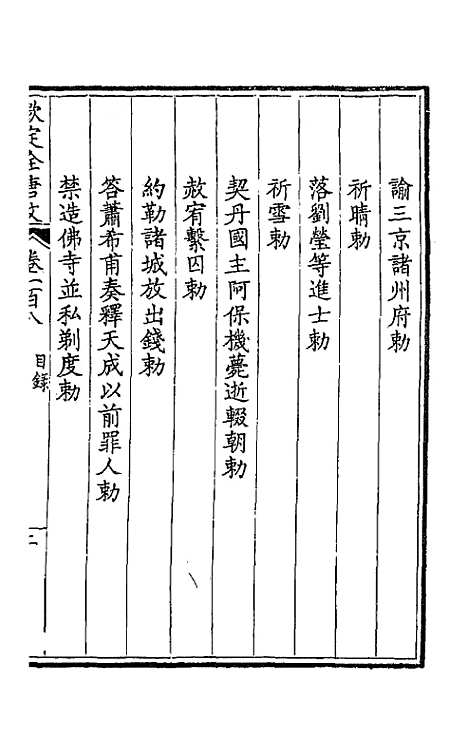 諭三京諸州府勅
祈晴勅
落劉瑩等進士勅
祈雪勅
契丹國主阿保機薨逝輟朝勅
赦宥繫囚勅
約勒諸城放出錢勅
答蕭希甫奏釋天成以前罪人勅
禁造佛寺並私剃度勅
欽定全唐文 卷一百八 目錄